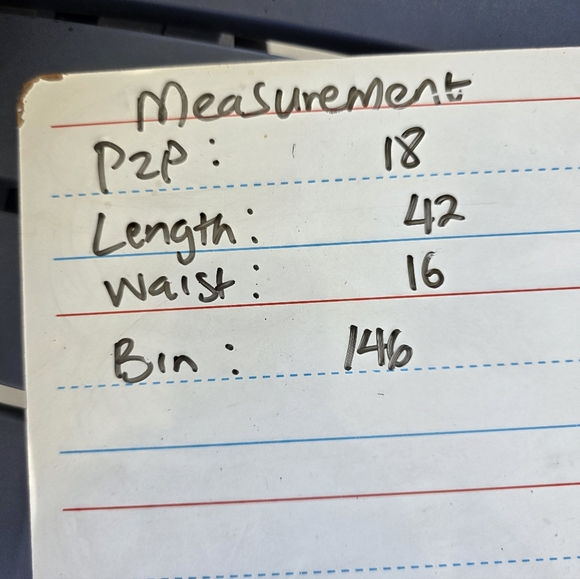 Measurement
P2P: 18
Length: 42
Waist: 16
Bin: 146